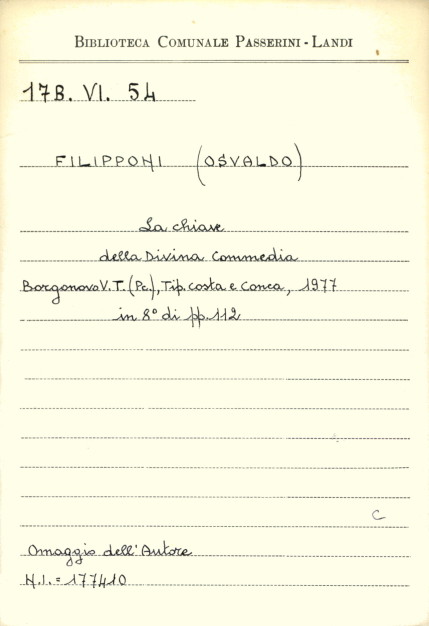 BIBLIOTECA COMUNALE PASSERINI - LANDI
17B. VI. 54
FILIPPONI (OSVALDO)
La chiave
della Divina Commedia
Borgonovo V.T. (Pc.), Tip. Costa e Conca, 1977
in 8° di pp. 112
C
Omaggio dell'Autore
N.I. = 177410